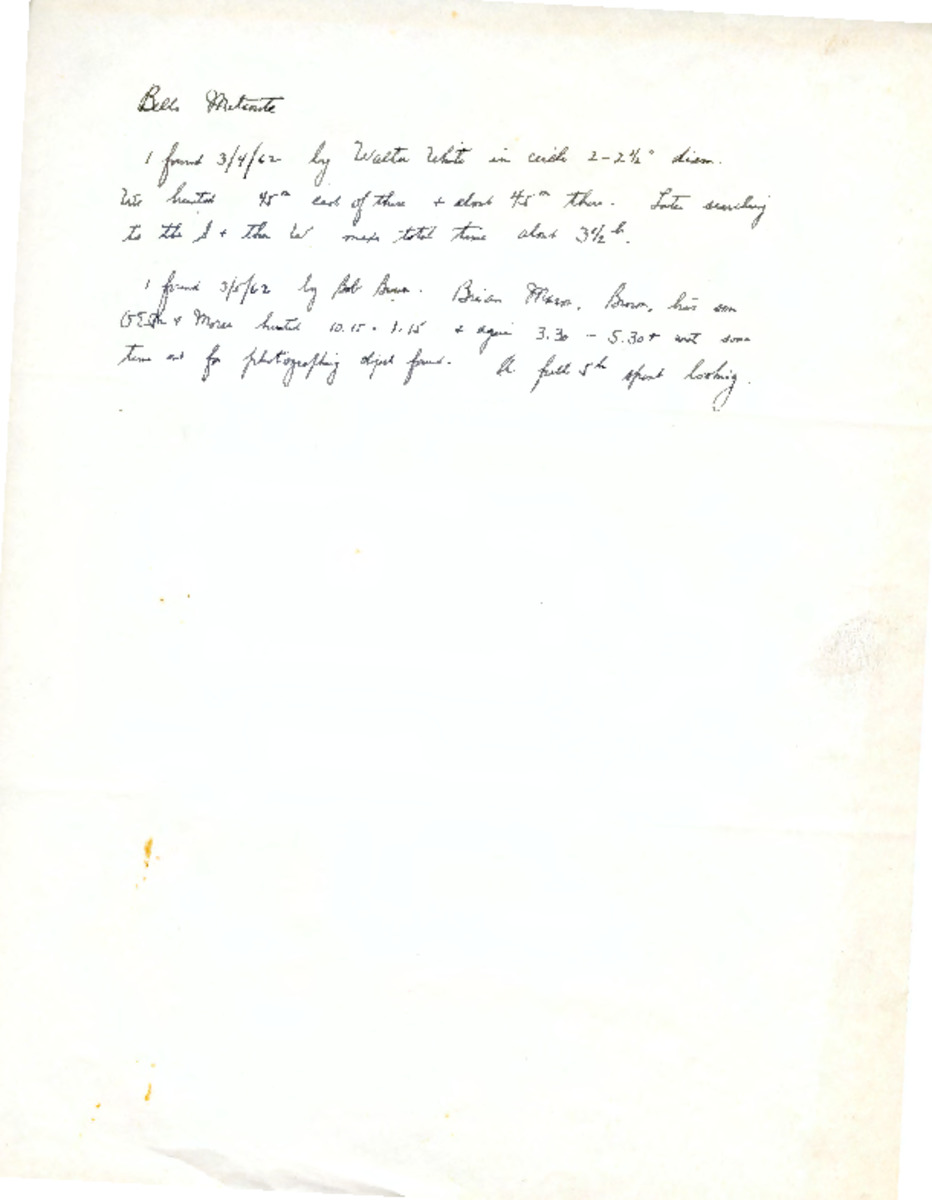 Bells Meteorite
1 found 3/4/62 by Walter White in circle 2-2½" diam.
We hunted 45m east of there + about 45m there. Later searching
to the S + then W made total time about 3½ h.
1 found 3/5/62 by Bob Brown. Brian Mason, Brown, his son
& Morse hunted 10.15 - 1.15 + again 3.30 - 5.30 + not some
time out for photographing object found. A full 5h spent looking.